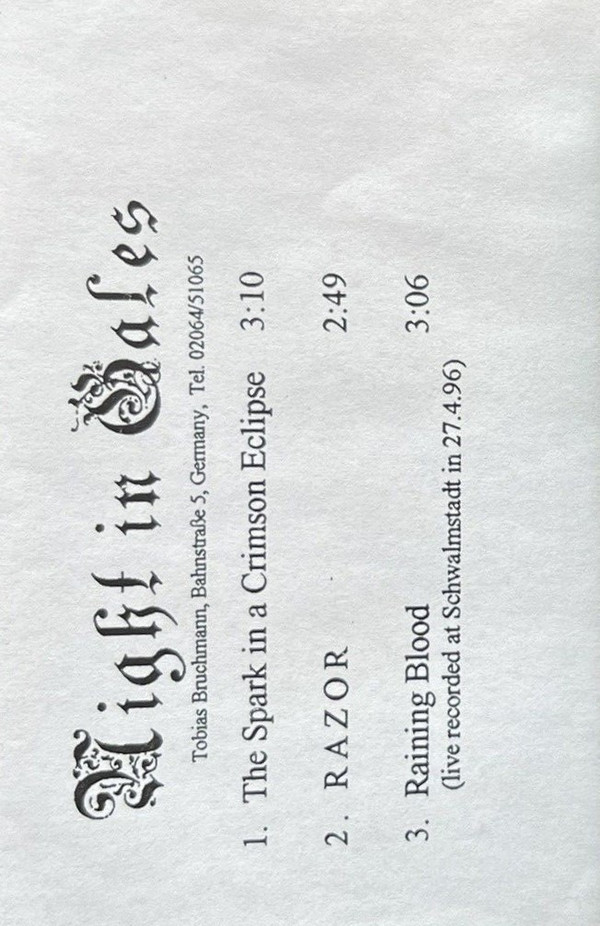 Night in Gales
Tobias Bruchmann, Bahnstraße 5, Germany, Tel. 02064/51065
1. The Spark in a Crimson Eclipse 3:10
2. RAZOR 2:49
3. Raining Blood 3:06
(live recorded at Schwalmstadt in 27.4.96)